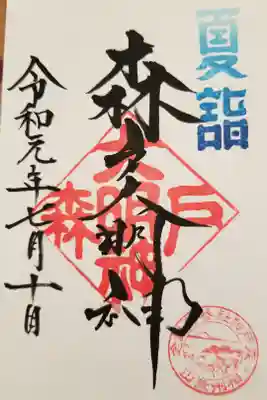 夏詣
森戸大明神
森戸大明神
令和元年七月十日